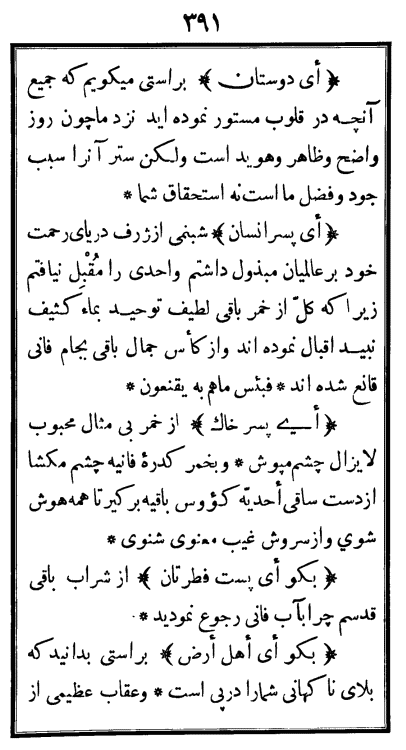 ٣٩١
﴿ أی دوستان ﴾ براستی میکویم که جمیع
آنچـه در قلوب مستور نموده اید نزد ماچون روز
واضح وظاهر وهویـد است ولـکن ستر آنرا سبب
جود وفضل ما است نه استحقاق شما *
﴿ أی پسرانسان ﴾ شبنمی ازژرف دریای رحمت
خود برعالمیان مبذول داشتم واحدی را مُقْبِل نیافتم
زیرا که کلّ از خمر باقی لطیف توحیـد بماء کـثیف
نبیـد اقبال نموده اند واز کأس جمال باقی بجام فانی
قانع شده اند * فبئس ماهم به یقنعون *
﴿ أی پسر خاك ﴾ از خمر بی مثال محبوب
لا یزال چشم مپوش * وبخمر کدرۀ فانیه چشم مکشا
ازدست ساقی أحدیّه کـؤوس باقیه برکیر تا همه هوش
شوي وازسروش غیب معنوی شنوی *
﴿ بکو أی پست فطرتان ﴾ از شراب باقی
قدسم چرا بآب فانی رجوع نمودید *
﴿ بکو أی أهل أرض ﴾ براستی بدانید که
بلای نا کهانی شمارا درپی است * وعقاب عظیمی از